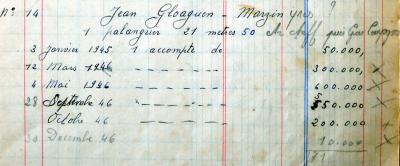 No 14 Jean Gloaguen - Margin Yves
1 palanguer 21 mètres 50
3 janvier 1945 1 accompte de 50.000,
12 Mars 1946 — — — — — 300.000,
4 Mai 1946 — — — — — 600.000
28 Septembre 46 — — — — — 550.000
Octobre 46 — — — — — 200.000
30 Decembre 46 10.000